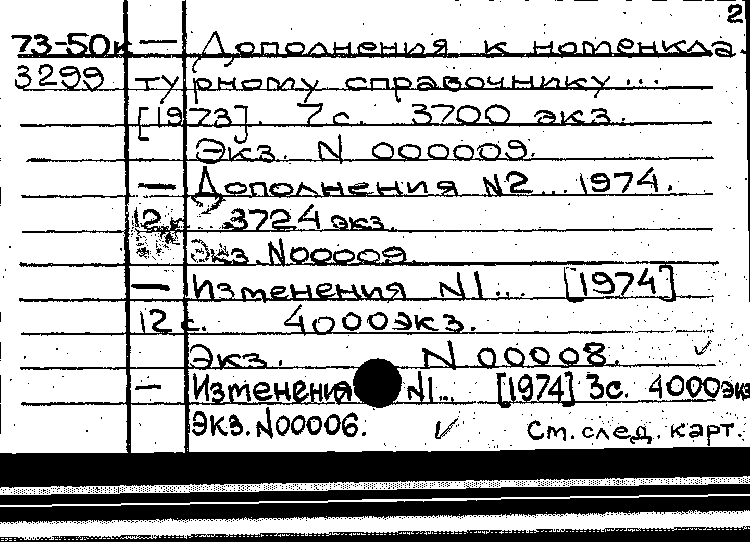 2
73-50к — Дополнения к номенкла-
3299 турному справочнику...
[1973]. 7 с. 3700 экз.
Экз. N 000009.
— Дополнения N2... 1974.
12 с. 3724 экз.
Экз. N00009.
— Изменения N1... [1974]
12 с. 4000 экз.
Экз. N 00008. ✓
— Изменения N1... [1974] 3с. 4000 экз
экз. N00006. ✓ См. след. карт.